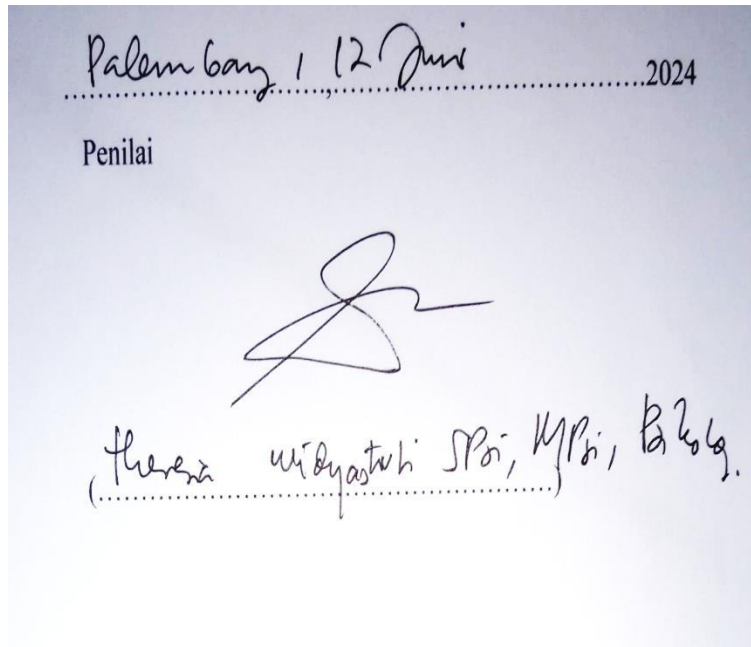 Palembang, 12 Juni 2024
Penilai
(Theresia Widyastuti SPsi, MPsi, Psikolog.)